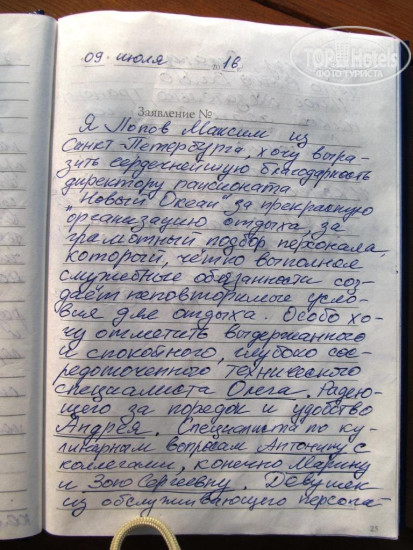 TOPHotels
ФОТО ТУРИСТА
09 июля 20 16.
Заявление №
Я Попов Максим из
Санкт-Петербурга, хочу выра-
зить сердечнейшую благодарность
директору пансионата
"Новый Океан" за прекрасную
организацию отдыха, за
грамотный подбор персонала,
который, чётко выполняя
служебные обязанности соз-
даёт неповторимые усло-
вия для отдыха. Особо хо-
чу отметить выдержанного
и спокойного, глубоко сос-
редоточенного технического
специалиста Олега. Радею-
щего за порядок и удобство
Андрея. Специалиста по ку-
линарным вопросам Антонину с
коллегами, конечно Марину
и Зою Сергеевну. Девушек
из обслуживающего персона-
25